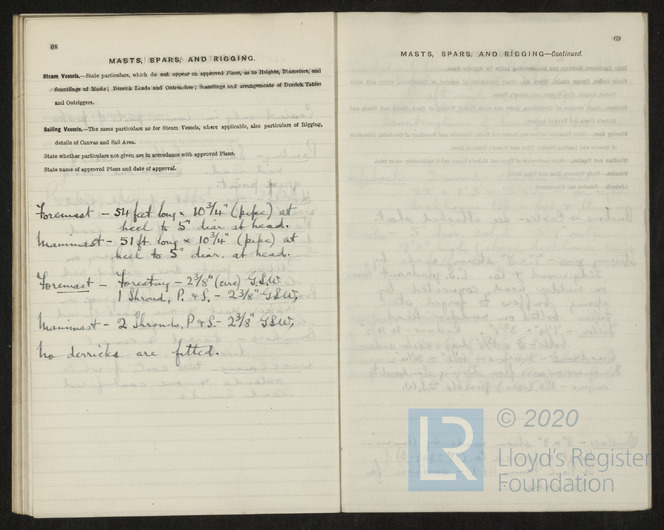 68
MASTS, SPARS, AND RIGGING.
Steam Vessels.—State particulars, which do not appear on approved Plans, as to Heights, Diameters, and
Scantlings of Masts; Derrick Loads and Outreaches; Scantlings and arrangements of Derrick Tables
and Outriggers.
Sailing Vessels.—The same particulars as for Steam Vessels, where applicable, also particulars of Rigging,
details of Canvas and Sail Area.
State whether particulars not given are in accordance with approved Plans.
State name of approved Plans and date of approval.
Foremast – 54 feet long × 10 3/4" (pipe) at
heel to 5" diar. at head.
Mainmast – 51 ft. long × 10 3/4" (pipe) at
heel to 5" diar. at head.
Foremast – Forestay – 2 3/8" (circ) G.S.W.
1 Shroud, P. & S. – 2 3/8" G.S.W.
Mainmast – 2 Shrouds, P & S – 2 3/8" G.S.W.
No derricks are fitted.
69
MASTS, SPARS, AND RIGGING—Continued.
© 2020
LR
Lloyd's Register
Foundation